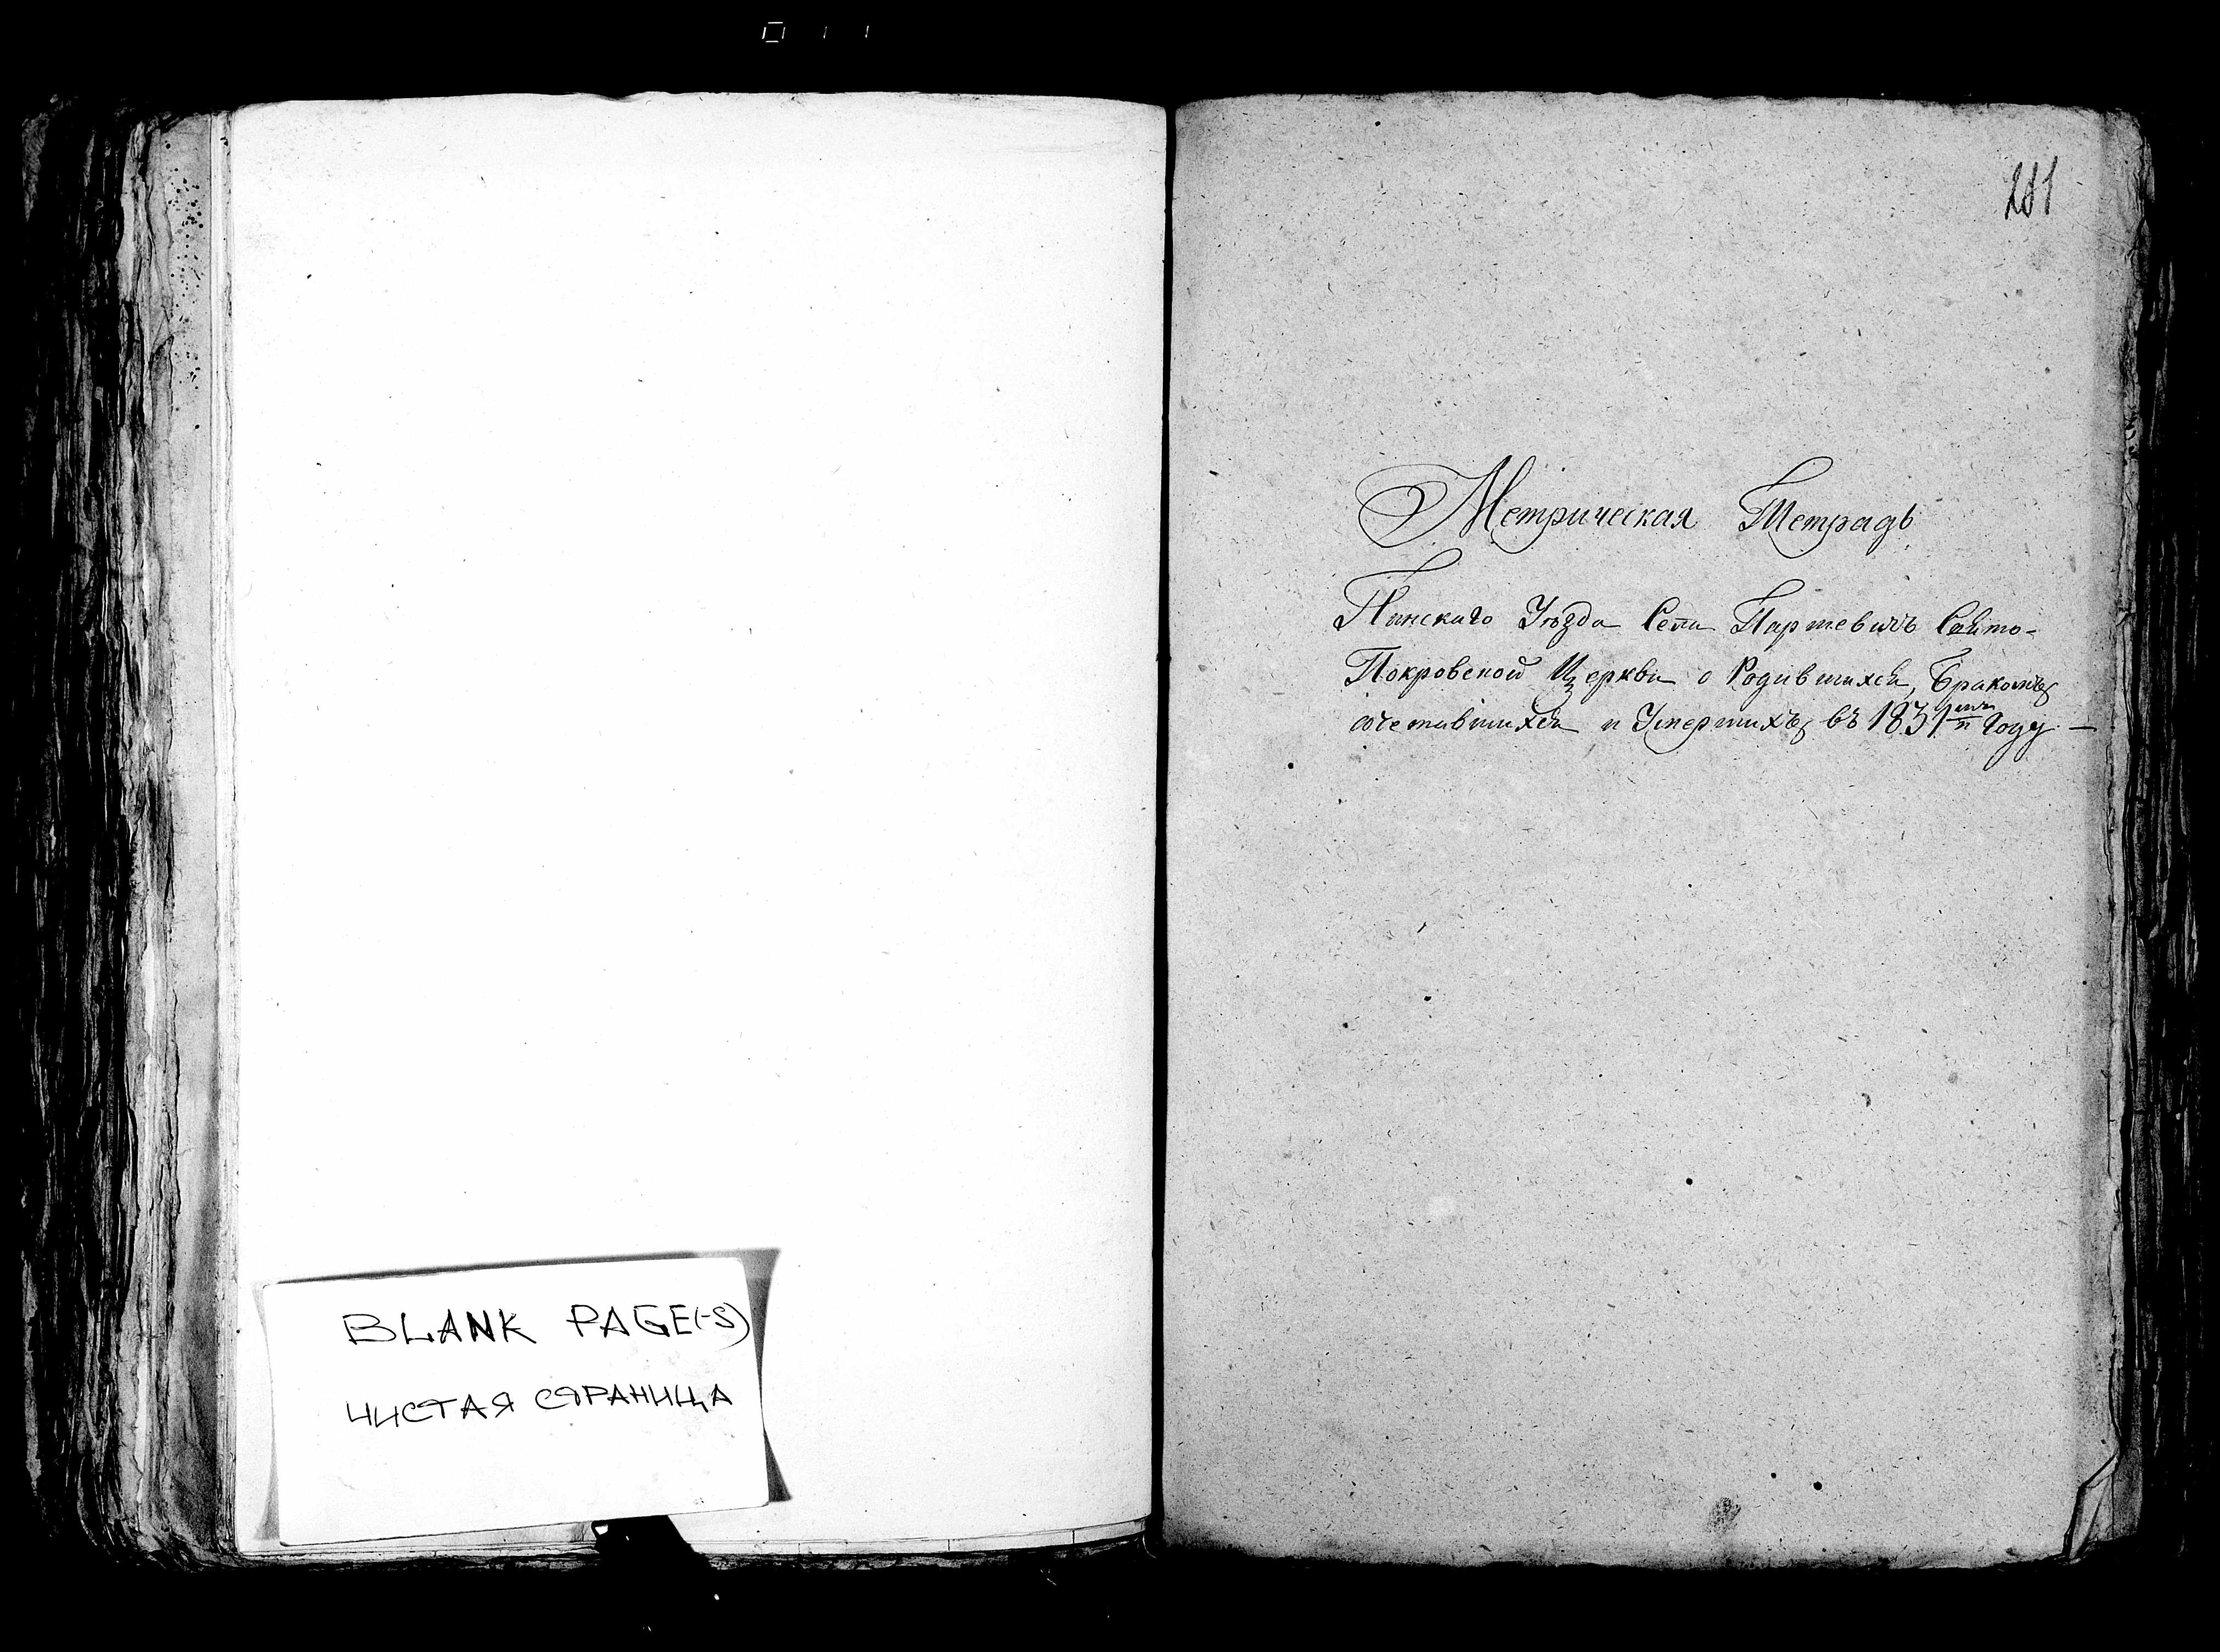 BLANK PAGE(-S)
ЧИСТАЯ СТРАНИЦА
281
Метрическая Тетрадь
Пинскаго Уѣзда Села Партевичь Свято-
Покровской Церкви о Родившихся, Бракомъ
сочетавшихся и Умершихъ въ 1831мъ Году —